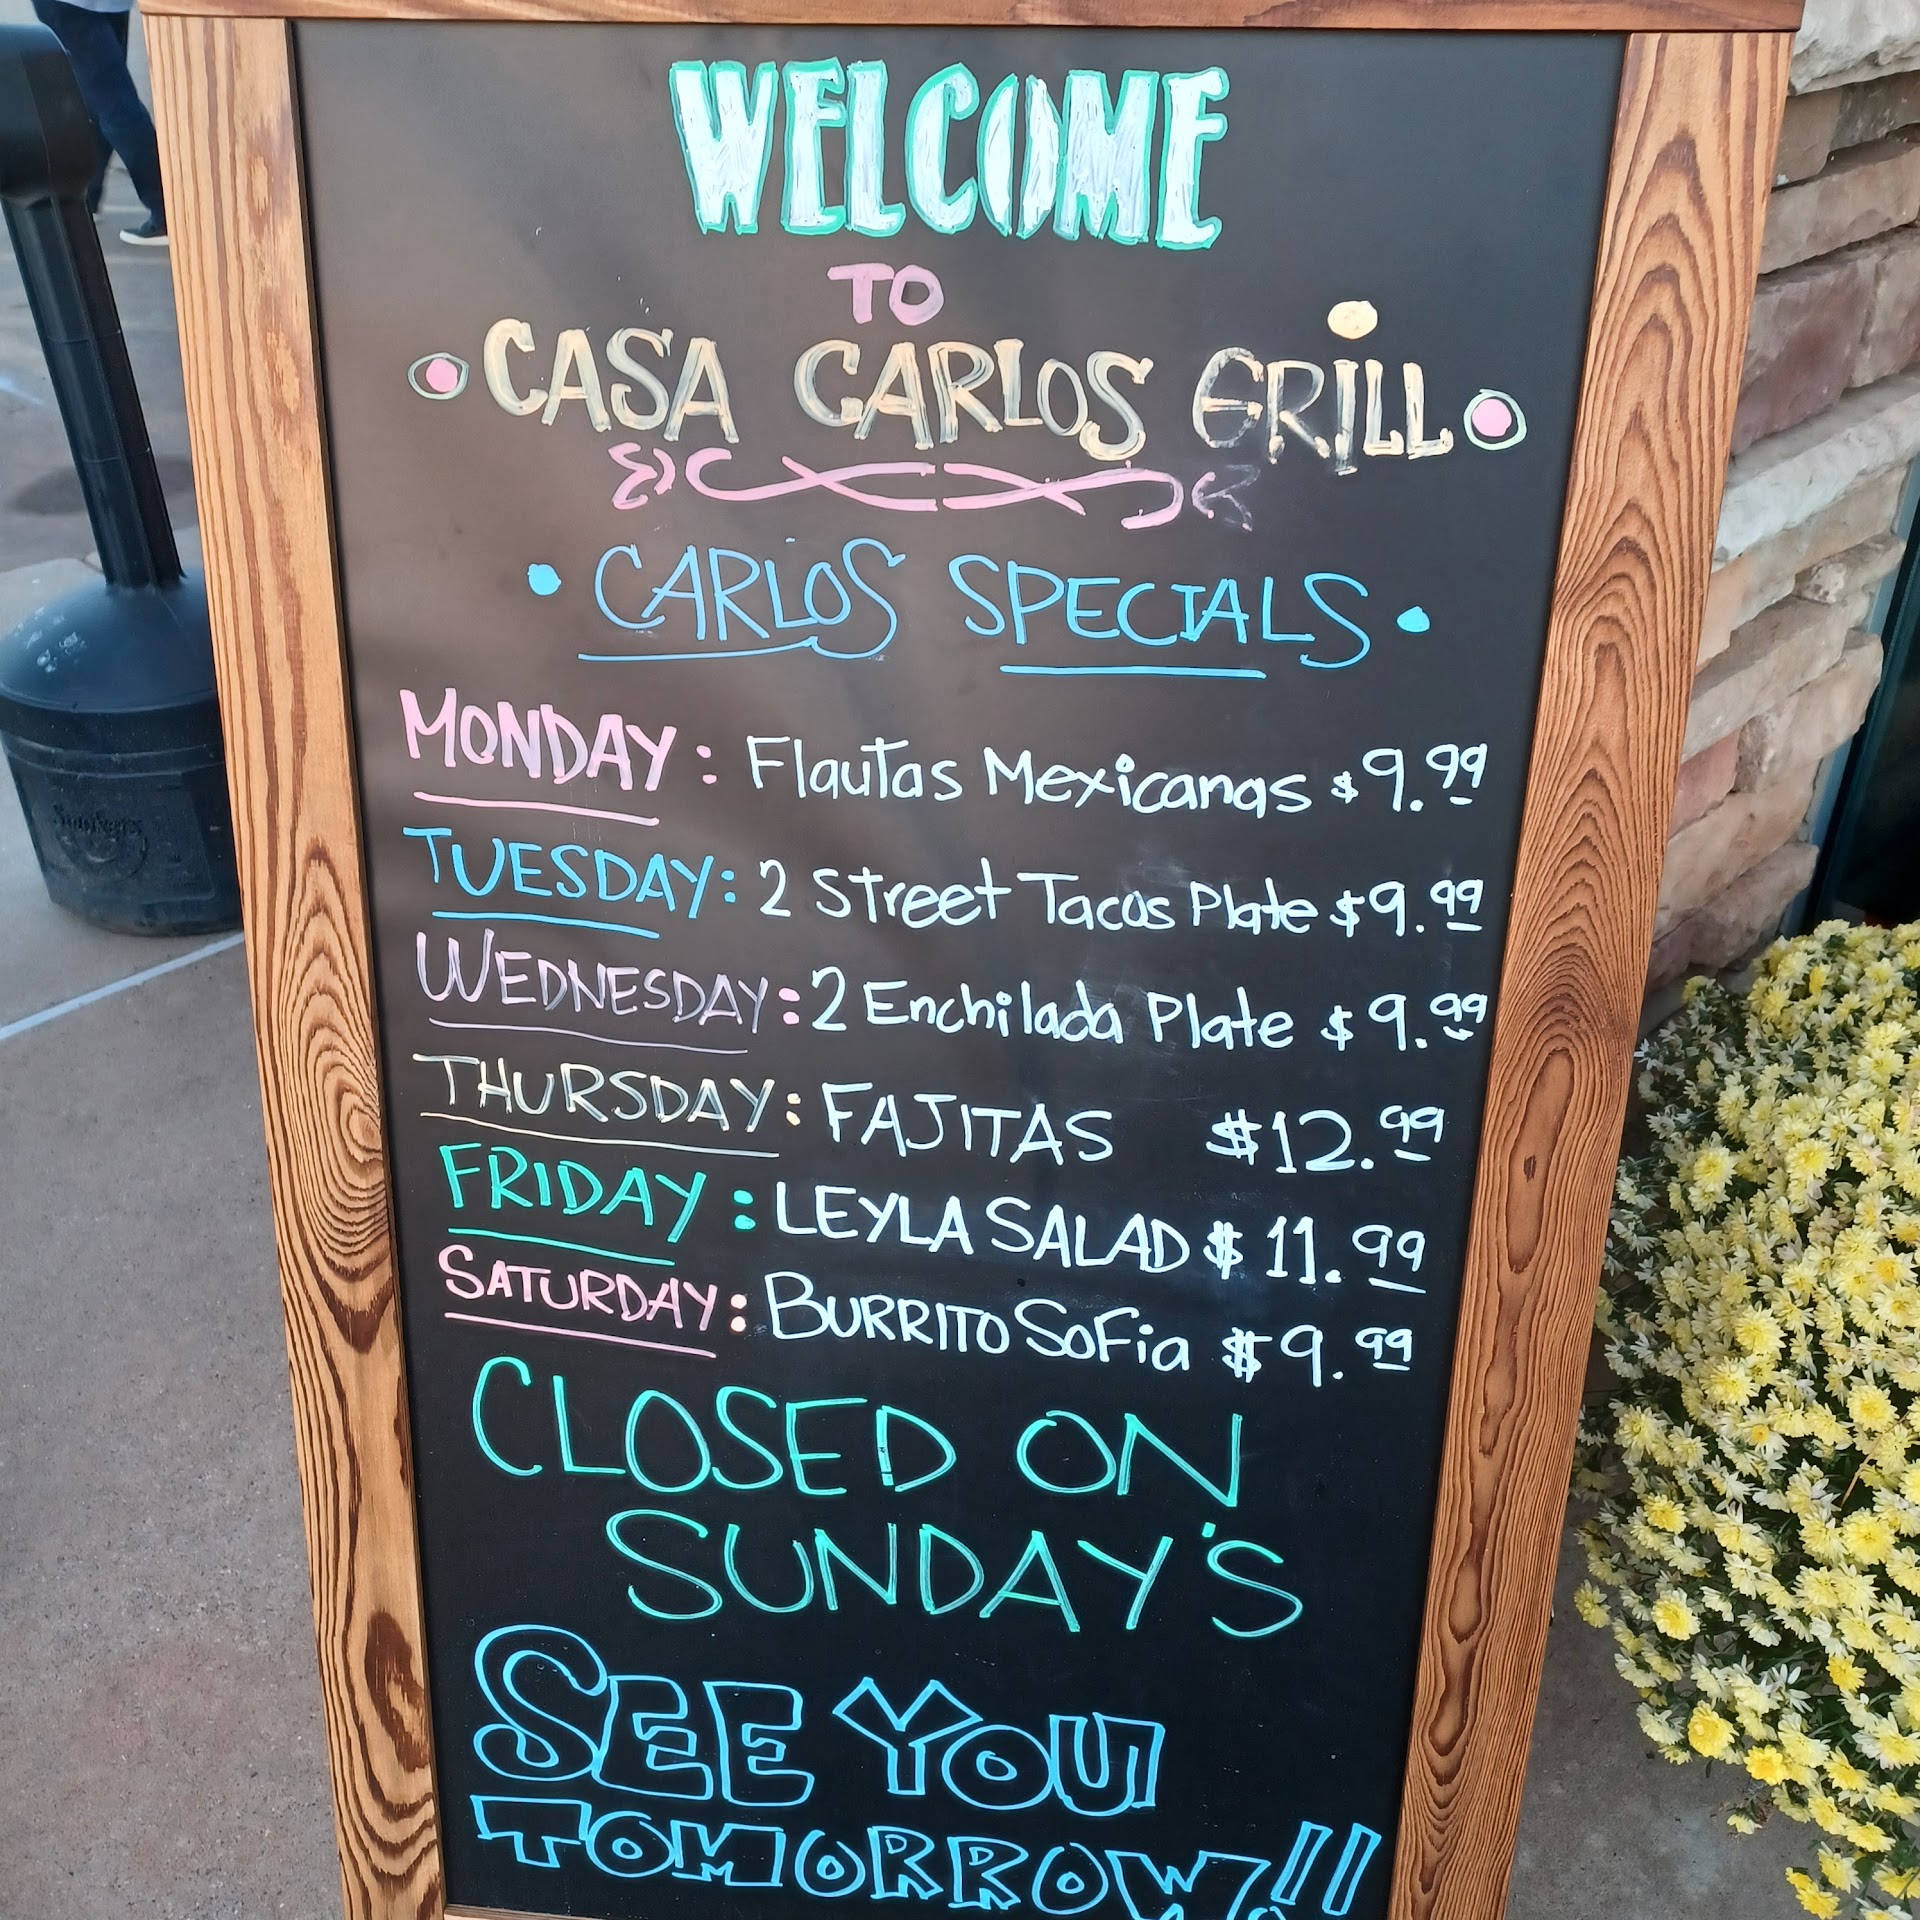 WELCOME
TO
CASA CARLOS GRILL
CARLOS SPECIALS
MONDAY: Flautas Mexicanas $9.99
TUESDAY: 2 Street Tacos Plate $9.99
WEDNESDAY: 2 Enchilada Plate $9.99
THURSDAY: FAJITAS $12.99
FRIDAY: LEYLA SALAD $11.99
SATURDAY: BURRITO SOFia $9.99
CLOSED ON
SUNDAY'S
SEE YOU
TOMORROW!!